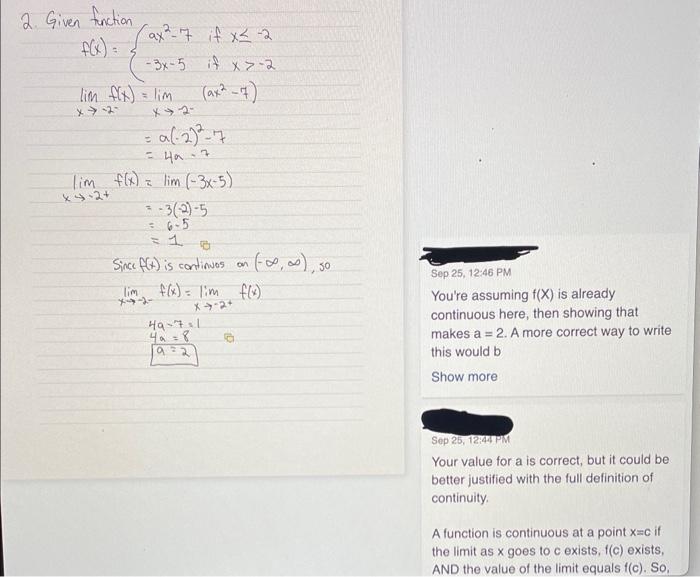 2. Given function
f(x) = { ax²-7 if x≤ -2
-3x-5 if x>-2
lim f(x) = lim (ax²-7)
x→-2⁻ x→-2⁻
= a(-2)²-7
= 4a-7
lim f(x) = lim (-3x-5)
x→-2+
= -3(-2)-5
= 6-5
= 1
Since f(x) is continuos on (-∞, ∞), so
lim f(x) = lim f(x)
x→-2⁻ x→-2⁺
4a-7=1
4a = 8
a = 2
Sep 25, 12:46 PM
You're assuming f(X) is already
continuous here, then showing that
makes a = 2. A more correct way to write
this would b
Show more
Sep 25, 12:44 PM
Your value for a is correct, but it could be
better justified with the full definition of
continuity.
A function is continuous at a point x=c if
the limit as x goes to c exists, f(c) exists,
AND the value of the limit equals f(c). So,